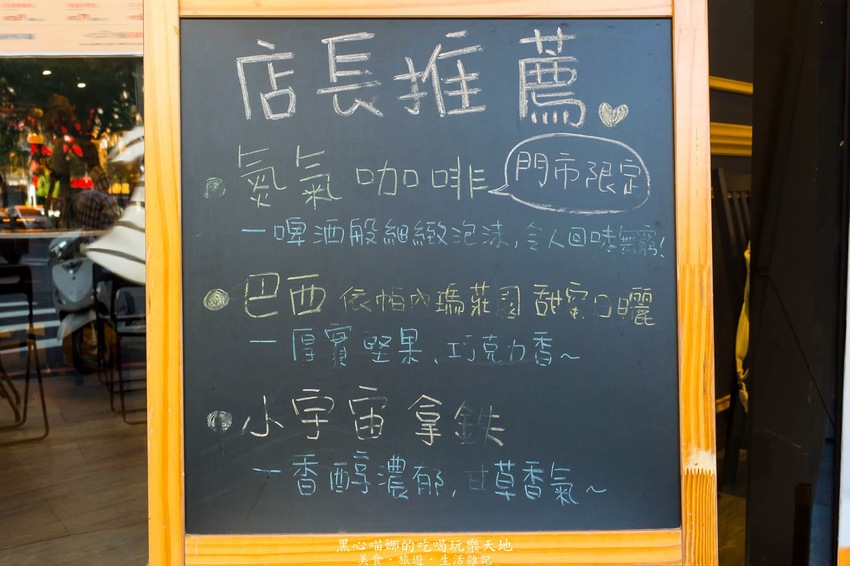 店長推薦
氮氣咖啡 門市限定
一啤酒般細緻泡沫,令人回味無窮!
巴西 依帕內瑪莊園 甜蜜日曬
一厚實堅果、巧克力香~
小宇宙 拿鐵
一香醇濃郁,甘草香氣~
黑心喵娜的吃喝玩樂天地
美食・旅遊・生活雜記